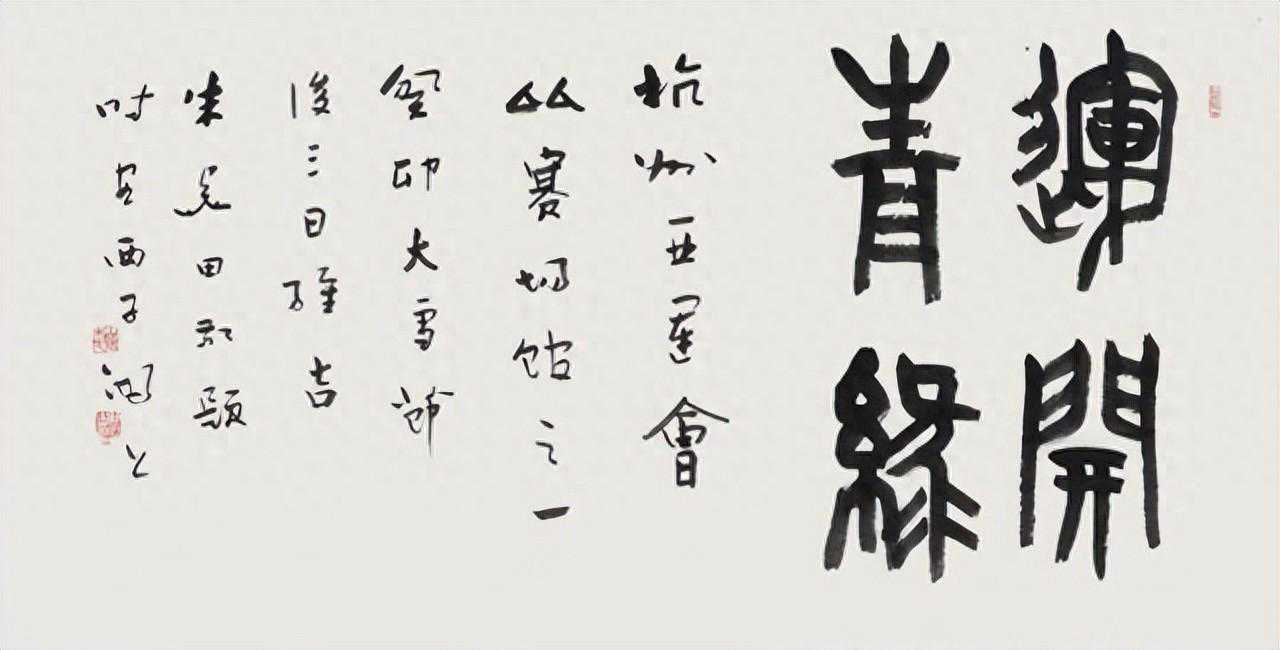 運開
青綠
杭州亞運會
比賽場館之一
癸卯大雪節
後三日維吉
朱关田敬題
時客西子湖上